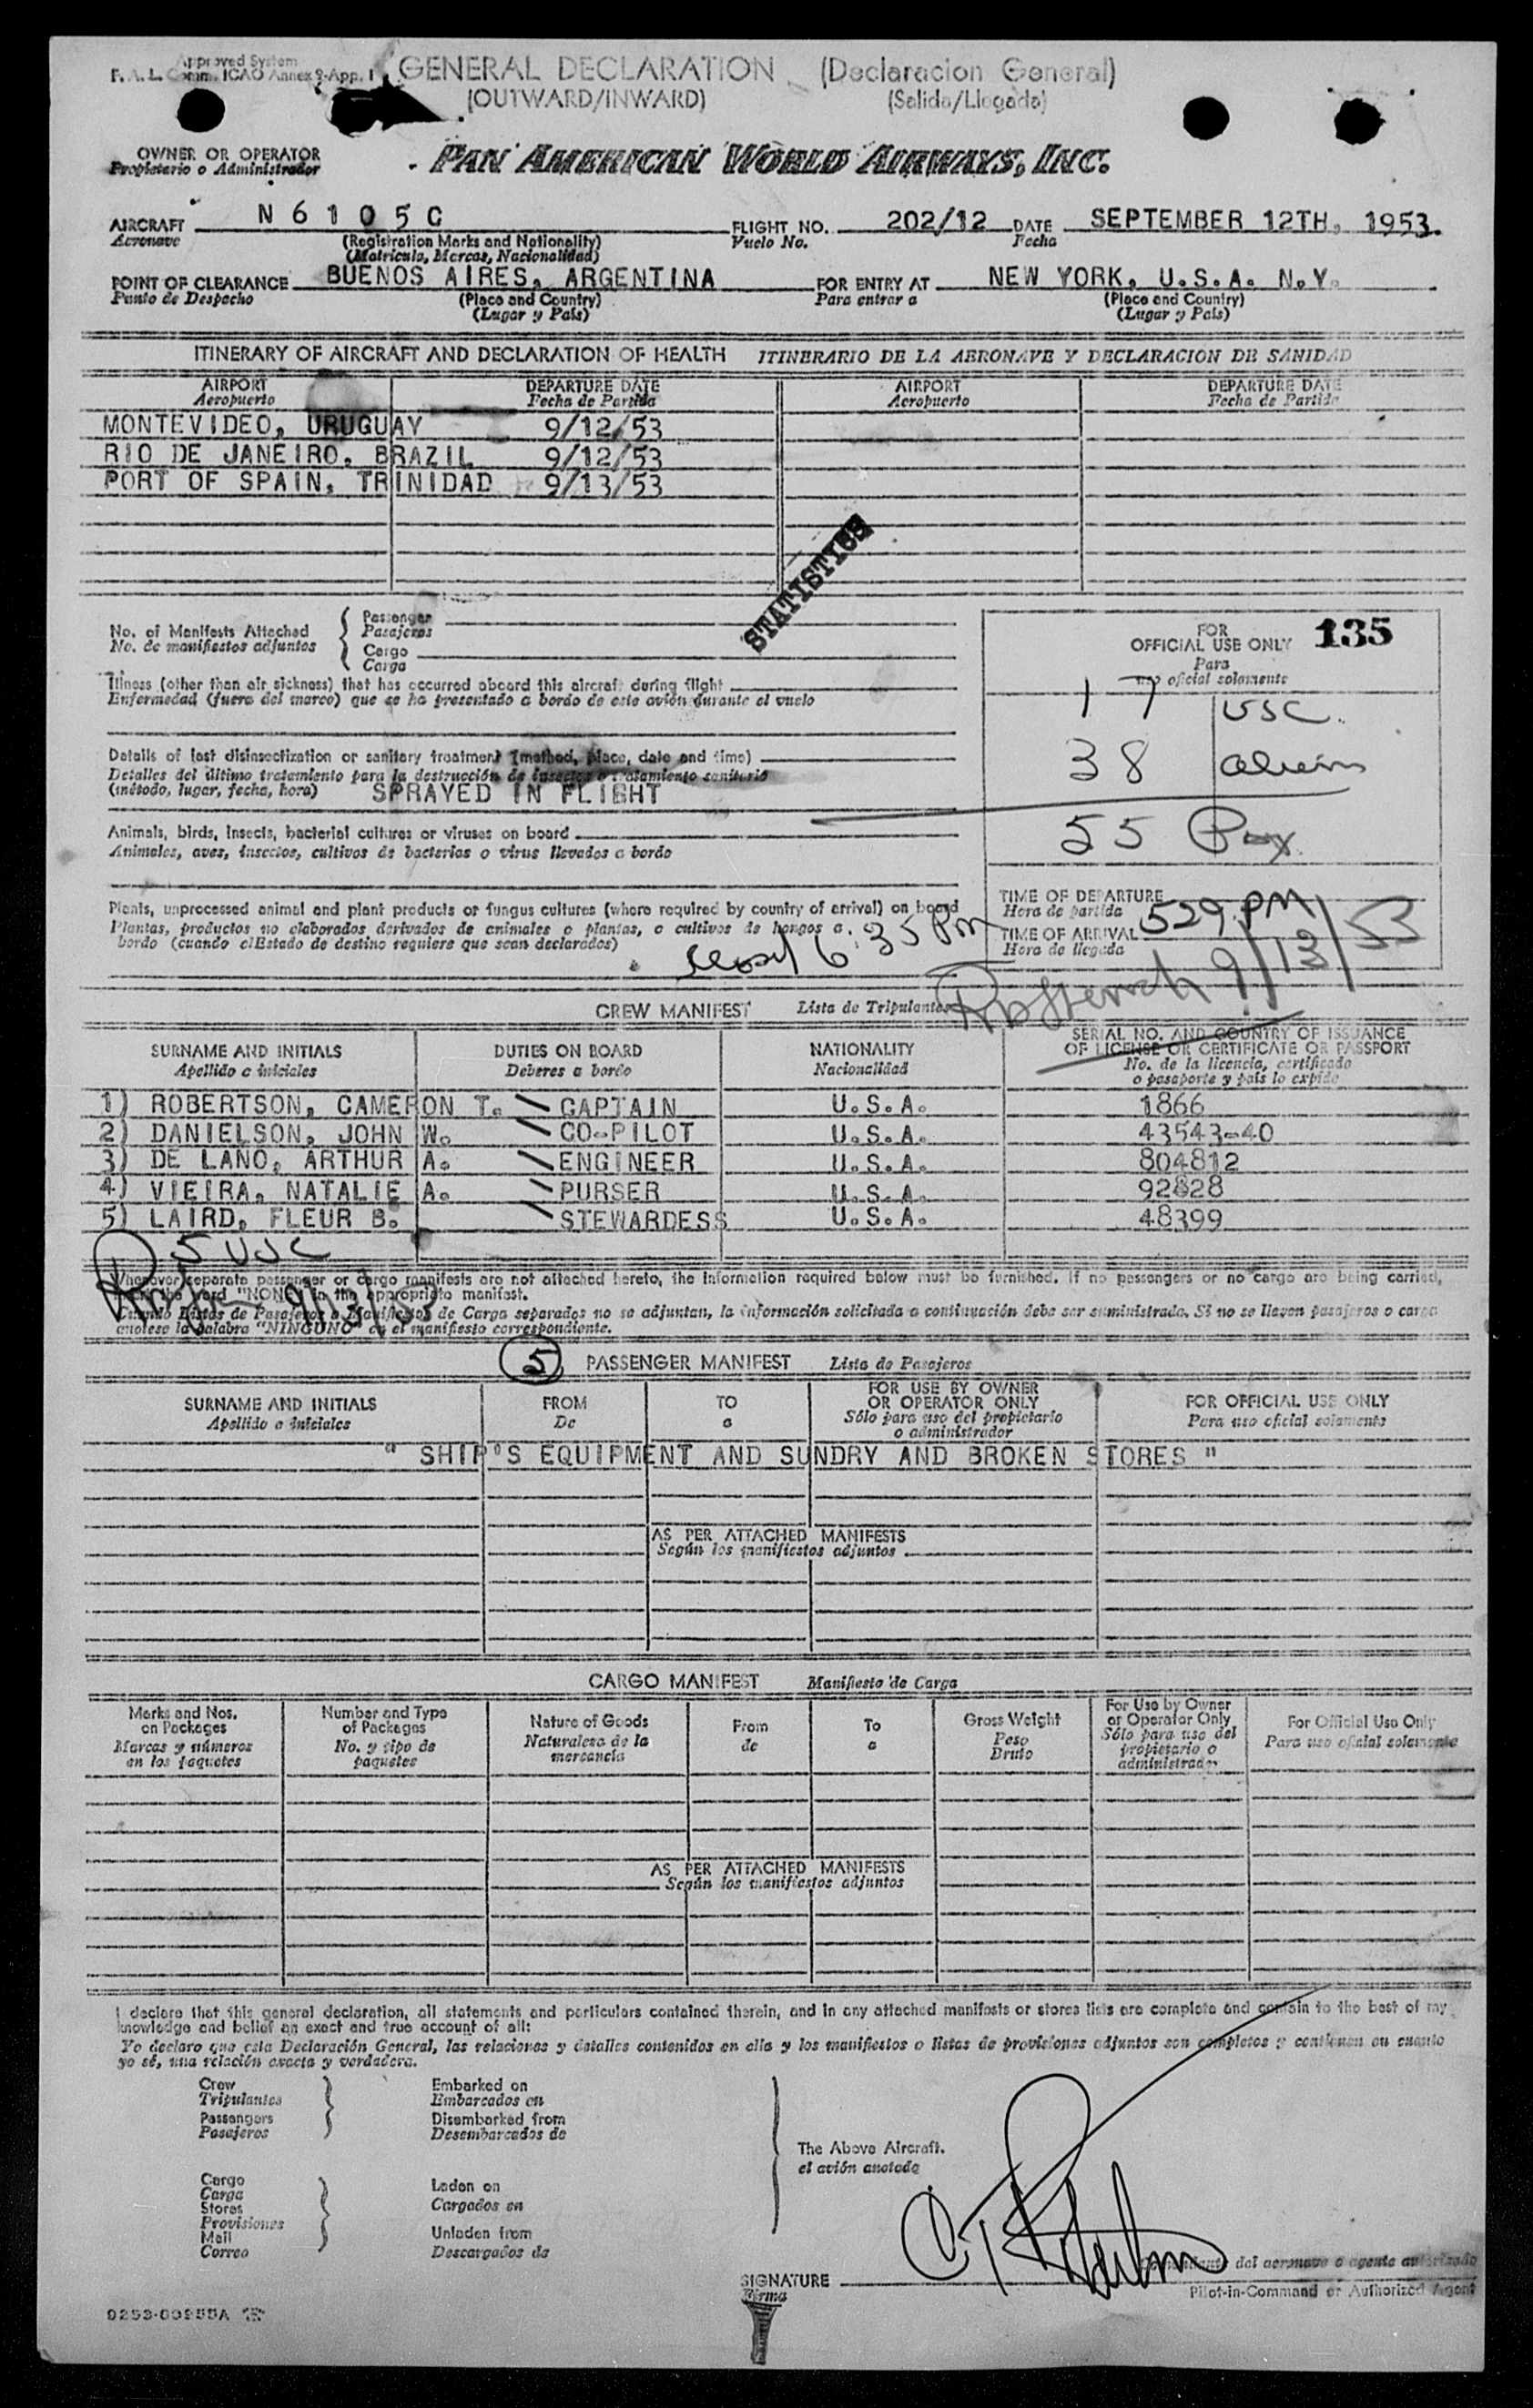 Approved System
F. A. L. Comm. ICAO Annex 9-App. 1
GENERAL DECLARATION (Declaracion General)
(OUTWARD/INWARD) (Salida/Llegada)
OWNER OR OPERATOR PAN AMERICAN WORLD AIRWAYS, INC.
Propietario o Administrador
AIRCRAFT N 6 1 0 5 C FLIGHT NO. 202/12 DATE SEPTEMBER 12TH, 1953.
Aeronave (Registration Marks and Nationality) Vuelo No. Fecha
(Matricula, Marcas, Nacionalidad)
POINT OF CLEARANCE BUENOS AIRES, ARGENTINA FOR ENTRY AT NEW YORK, U.S.A. N.Y.
Punto de Despacho (Place and Country) Para entrar a (Place and Country)
(Lugar y País) (Lugar y País)
ITINERARY OF AIRCRAFT AND DECLARATION OF HEALTH ITINERARIO DE LA AERONAVE Y DECLARACION DE SANIDAD
AIRPORT DEPARTURE DATE AIRPORT DEPARTURE DATE
Aeropuerto Fecha de Partida Aeropuerto Fecha de Partida
MONTEVIDEO, URUGUAY 9/12/53
RIO DE JANEIRO, BRAZIL 9/12/53
PORT OF SPAIN, TRINIDAD 9/13/53
STATISTICS
No. of Manifests Attached Passenger
No. de manifiestos adjuntos Pasajeros
Cargo
Carga
FOR
OFFICIAL USE ONLY 135
Para
uso oficial solamente
17 USC.
38 aliens
55 Pax
Illness (other than air sickness) that has occurred aboard this aircraft during flight
Enfermedad (fuera del mareo) que se ha presentado a bordo de este avión durante el vuelo
Details of last disinsectization or sanitary treatment (method, place, date and time)
Detalles del último tratamiento para la destrucción de insectos o tratamiento sanitario
(método, lugar, fecha, hora) SPRAYED IN FLIGHT
Animals, birds, insects, bacterial cultures or viruses on board
Animales, aves, insectos, cultivos de bacterias o virus llevados a bordo
Plants, unprocessed animal and plant products or fungus cultures (where required by country of arrival) on board
Plantas, productos no elaborados derivados de animales o plantas, o cultivos de hongos a
bordo (cuando el Estado de destino requiere que sean declarados)
6:35 PM
TIME OF DEPARTURE
Hora de partida
TIME OF ARRIVAL 529 PM
Hora de llegada
9/13/53
CREW MANIFEST Lista de Tripulantes
SURNAME AND INITIALS DUTIES ON BOARD NATIONALITY SERIAL NO. AND COUNTRY OF ISSUANCE
OF LICENSE OR CERTIFICATE OR PASSPORT
Apellido e iniciales Deberes a bordo Nacionalidad No. de la licencia, certificado
o pasaporte y país lo expide
1) ROBERTSON, CAMERON T. CAPTAIN U.S.A. 1866
2) DANIELSON, JOHN W. CO-PILOT U.S.A. 43543-40
3) DE LANO, ARTHUR A. ENGINEER U.S.A. 804812
4) VIEIRA, NATALIE A. PURSER U.S.A. 92828
5) LAIRD, FLEUR B. STEWARDESS U.S.A. 48399
5 USC
9/13/53
Whenever separate passenger or cargo manifests are not attached hereto, the information required below must be furnished. If no passengers or no cargo are being carried,
the word "NONE" in the appropriate manifest.
Cuando Listas de Pasajeros o Manifiestos de Carga separados no se adjuntan, la información solicitada a continuación debe ser suministrada. Si no se llevan pasajeros o carga
anótese la palabra "NINGUNO" en el manifiesto correspondiente.
5 PASSENGER MANIFEST Lista de Pasajeros
SURNAME AND INITIALS FROM TO FOR USE BY OWNER OR OPERATOR ONLY FOR OFFICIAL USE ONLY
Apellido e iniciales De a Sólo para uso del propietario o administrador Para uso oficial solamente
" SHIP'S EQUIPMENT AND SUNDRY AND BROKEN STORES "
AS PER ATTACHED MANIFESTS
Según los manifiestos adjuntos
CARGO MANIFEST Manifiesto de Carga
Marks and Nos. on Packages Number and Type of Packages Nature of Goods From To Gross Weight For Use by Owner or Operator Only For Official Use Only
Marcas y números en los paquetes No. y tipo de paquetes Naturaleza de la mercancía de a Peso Bruto Sólo para uso del propietario o administrador Para uso oficial solamente
AS PER ATTACHED MANIFESTS
Según los manifiestos adjuntos
I declare that this general declaration, all statements and particulars contained therein, and in any attached manifests or stores lists are complete and contain to the best of my
knowledge and belief an exact and true account of all:
Yo declaro que esta Declaración General, las relaciones y detalles contenidos en ella y los manifiestos o listas de provisiones adjuntos son completos y contienen en cuanto
yo sé, una relación exacta y verdadera.
Crew Embarked on
Tripulantes Embarcados en
Passengers Disembarked from
Pasajeros Desembarcados de
The Above Aircraft.
el avión anotado
Cargo Laden on
Carga Cargados en
Stores
Provisiones
Mail Unladen from
Correo Descargados de
SIGNATURE
Firma
Comandante del aeronave o agente autorizado
Pilot-in-Command or Authorized Agent